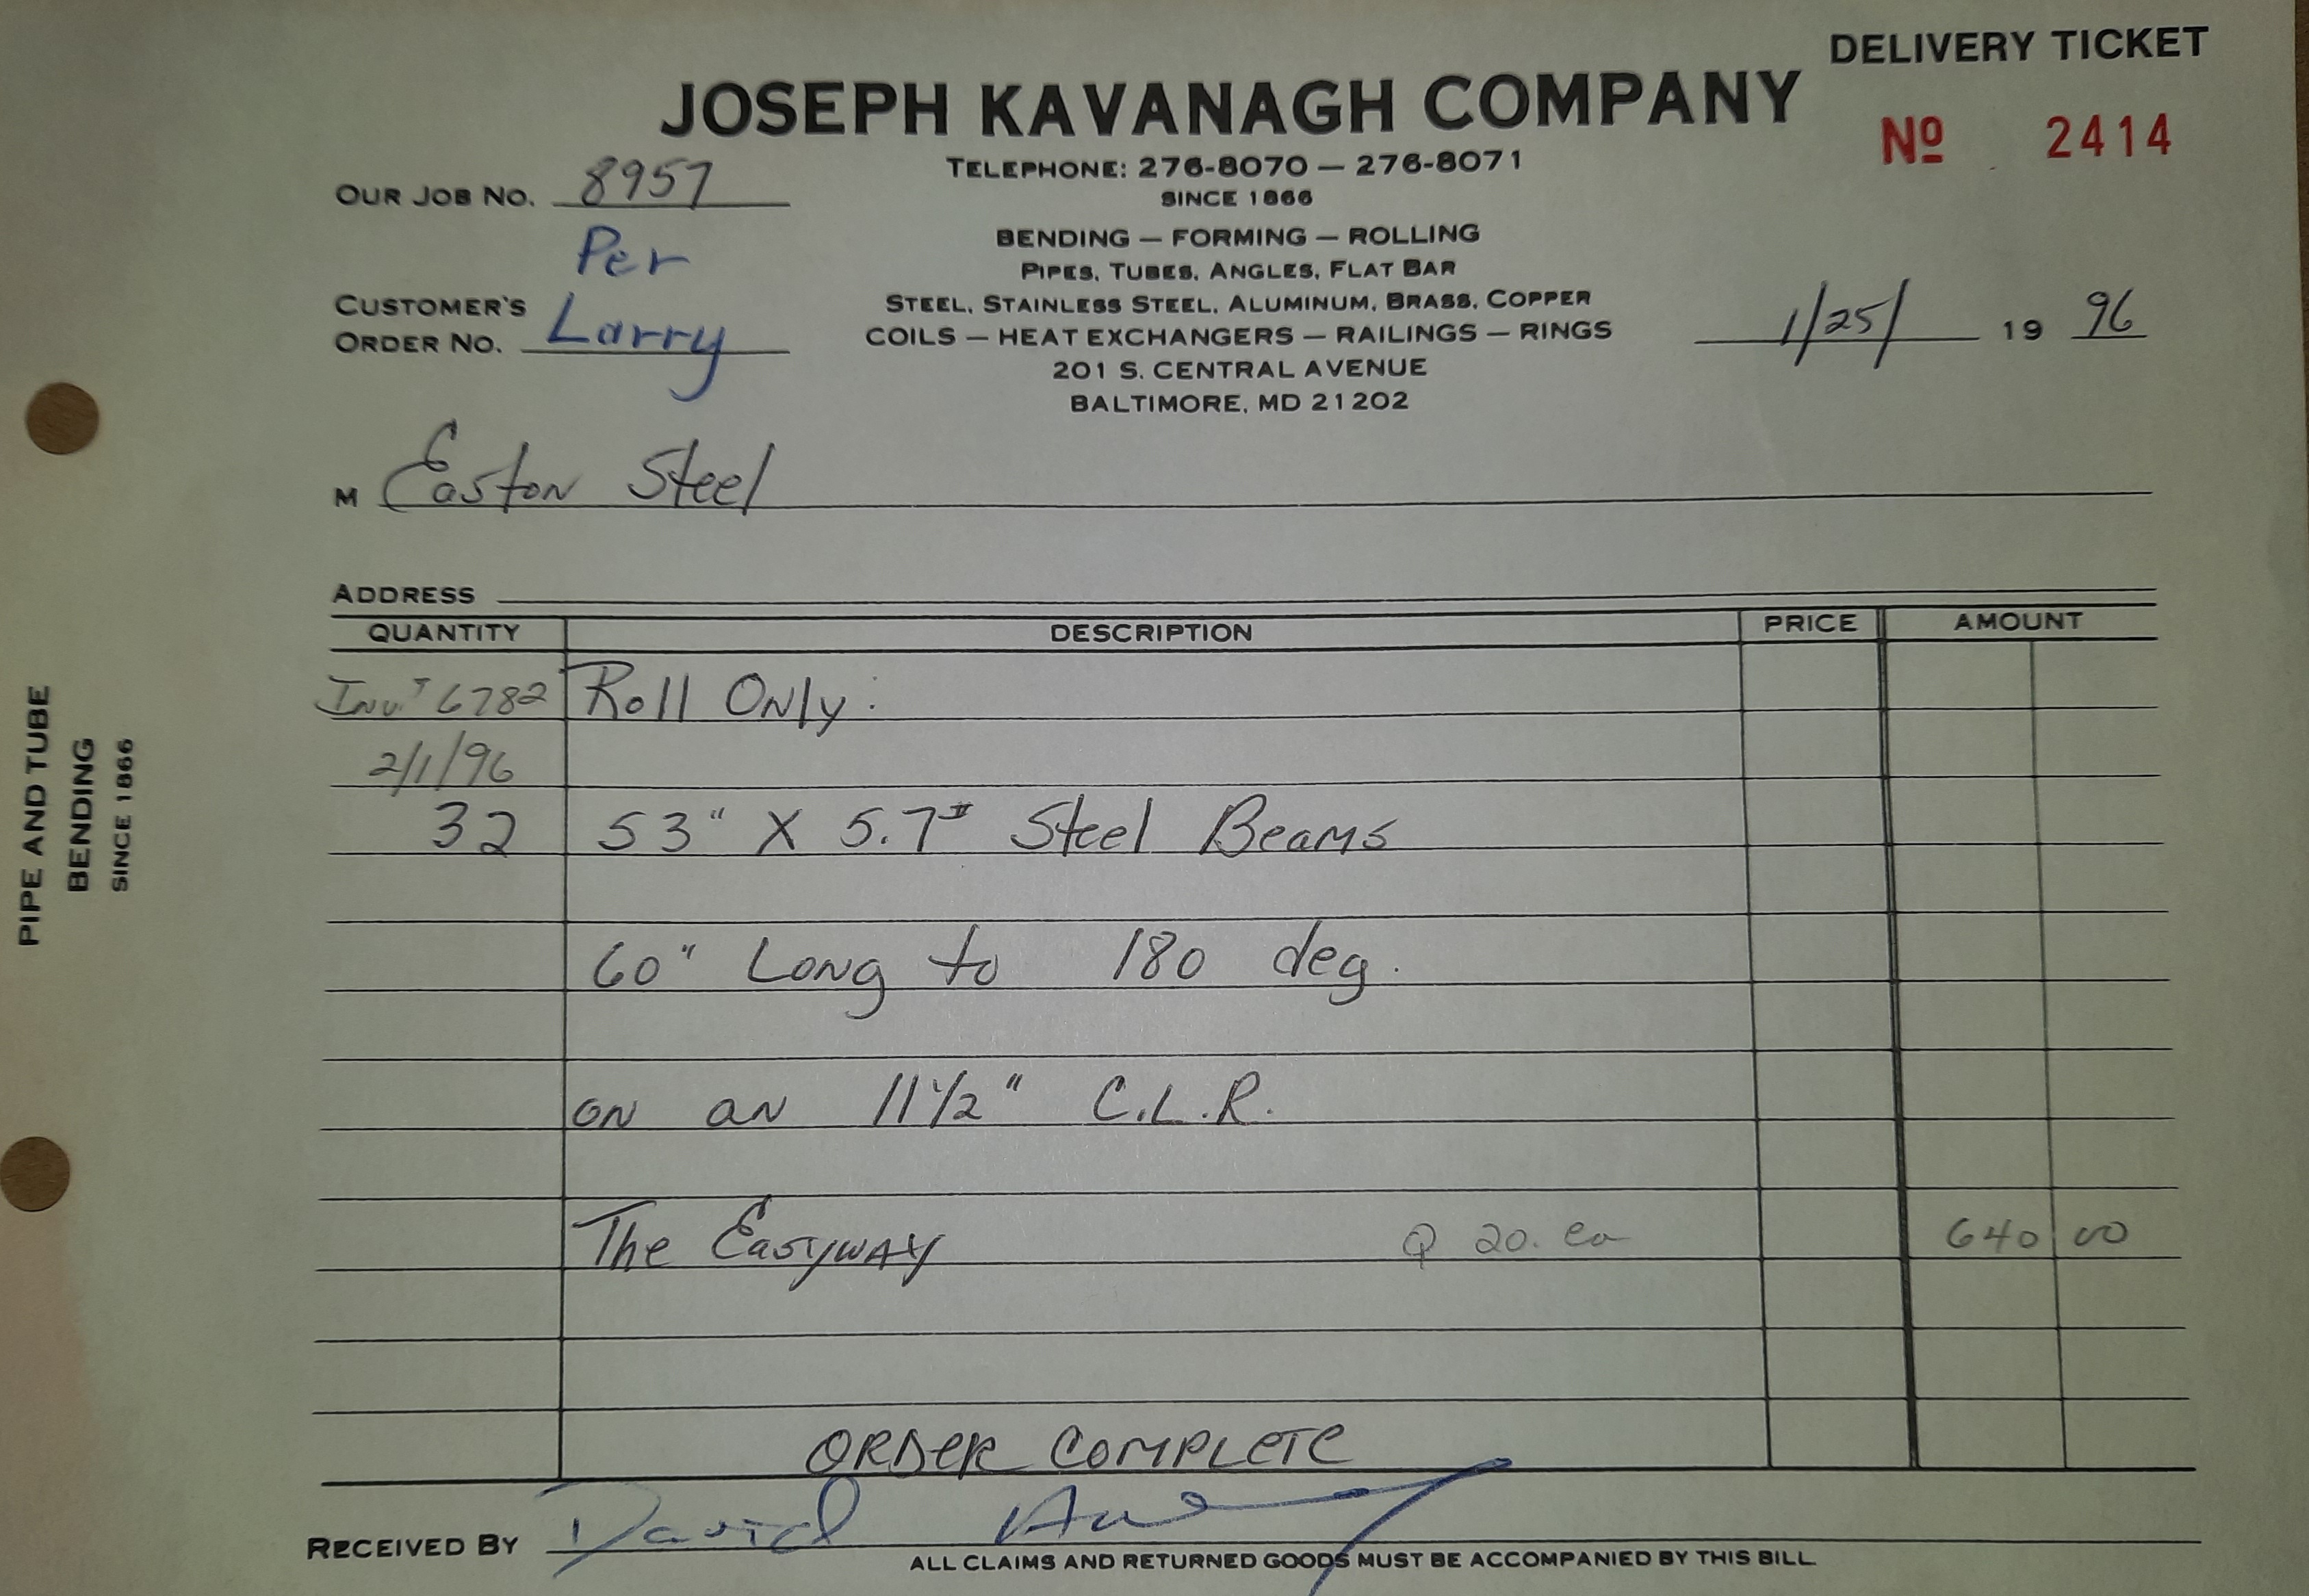 DELIVERY TICKET
JOSEPH KAVANAGH COMPANY
Nº 2414
TELEPHONE: 276-8070 — 276-8071
OUR JOB NO. 8957
SINCE 1866
Per
BENDING — FORMING — ROLLING
PIPES, TUBES, ANGLES, FLAT BAR
CUSTOMER'S
ORDER NO. Larry
STEEL, STAINLESS STEEL, ALUMINUM, BRASS, COPPER
COILS — HEAT EXCHANGERS — RAILINGS — RINGS
1/25/ 19 96
201 S. CENTRAL AVENUE
BALTIMORE, MD 21202
M Easton Steel
ADDRESS
QUANTITY DESCRIPTION PRICE AMOUNT
Inv. 6782 Roll Only:
2/1/96
32 S3" X 5.7# Steel Beams
60" Long to 180 deg.
on an 11 1/2" C.L.R.
The Easyway @ 20. ea 640 00
ORDER COMPLETE
RECEIVED BY David
ALL CLAIMS AND RETURNED GOODS MUST BE ACCOMPANIED BY THIS BILL
PIPE AND TUBE
BENDING
SINCE 1866